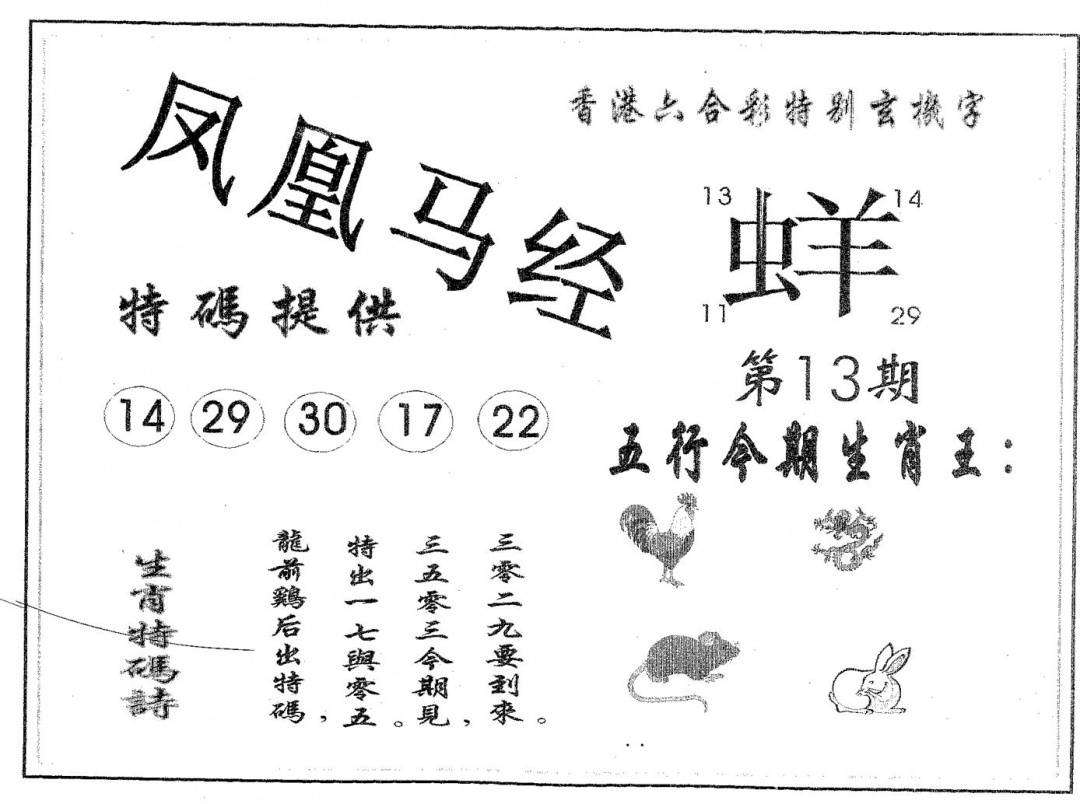 凤凰马经
香港六合彩特别玄機字
13 14
蛘
11 29
特碼提供
第13期
14 29 30 17 22
五行今期生肖王：
生肖特碼詩
龍前鷄后出特碼，
特出一七與零五。
三五零三今期見，
三零二九要到來。